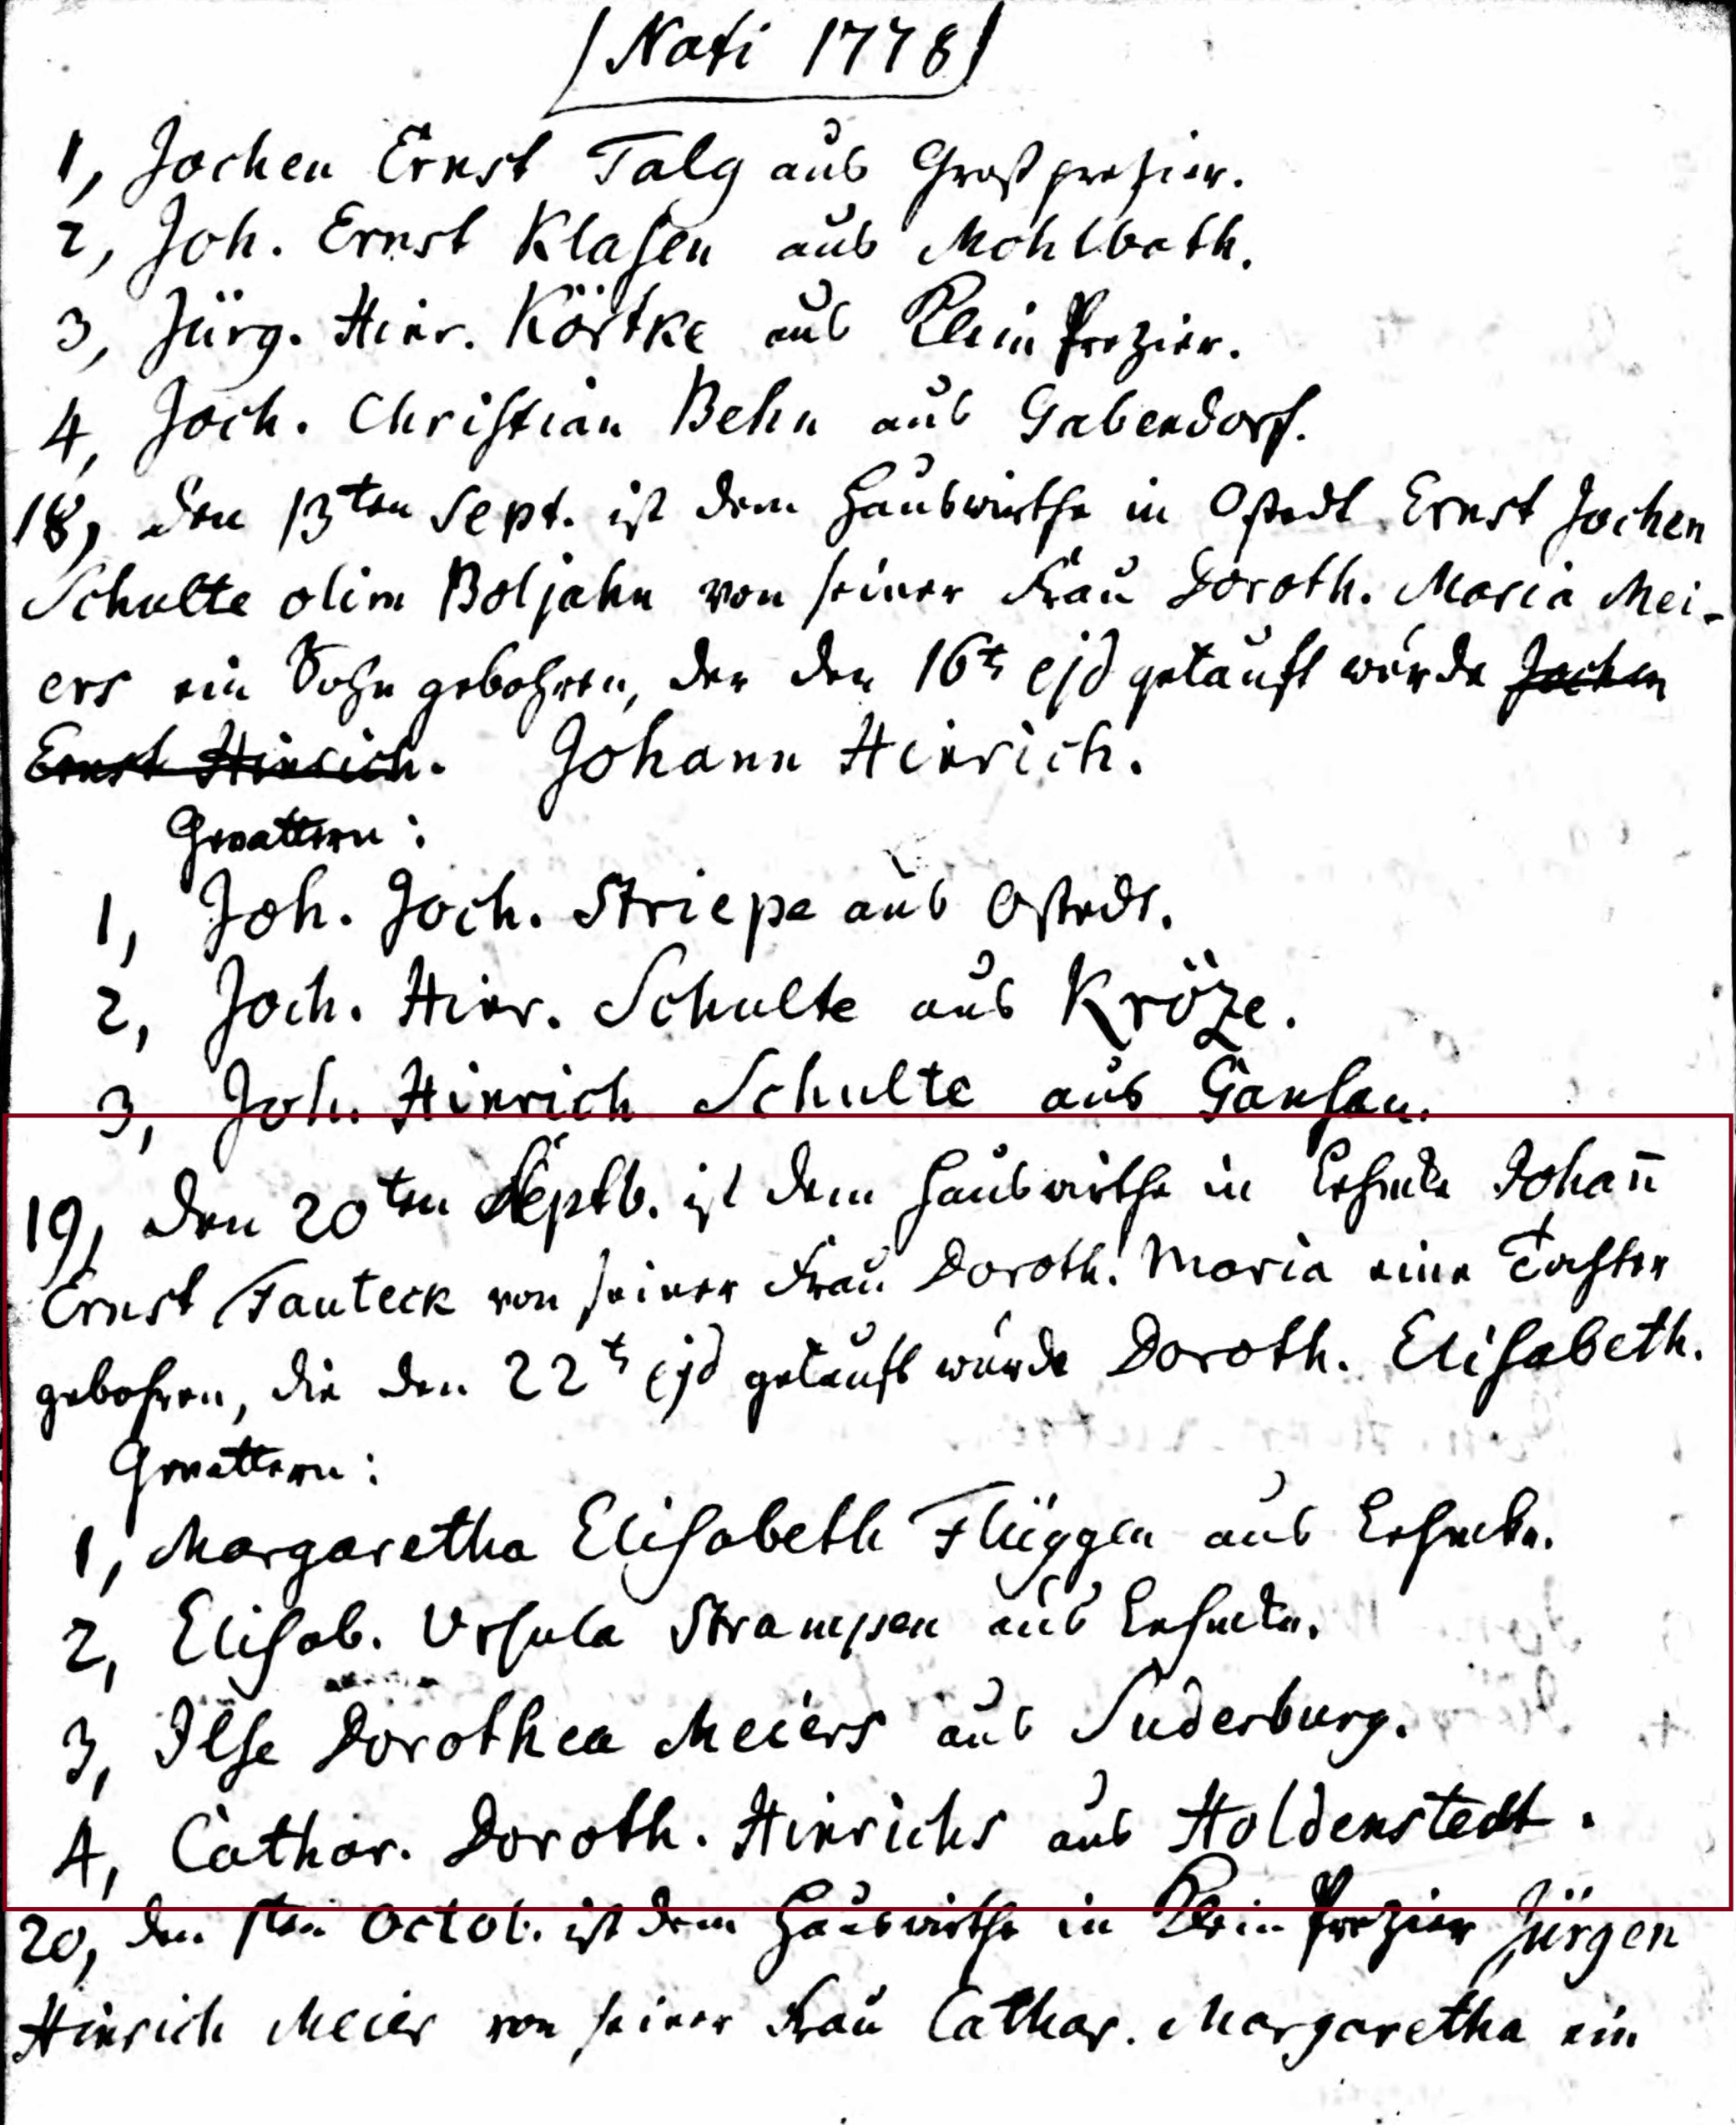 /Nati 1778/
1, Jochen Ernst Talg aus Großprezier.
2, Joh. Ernst Klasen aus Mohlbath.
3, Jürg. Hinr. Körtke aus Klein Prezier.
4, Joch. Christian Behn aus Gabendorf.
18, den 13ten Sept. ist dem Hauswirthe in Ostedt Ernst Jochen
Schulte olim Boljahn von seiner Frau Doroth. Maria Mei-
ers ein Sohn gebohren, der den 16t ejd getauft wurde Jochen
Ernst Hinrich. Johann Hinrich.
Gevattern:
1, Joh. Joch. Striepe aus Ostedt.
2, Joch. Hinr. Schulte aus Kröze.
3, Joh. Hinrich Schulte aus Gansau.
19, den 20ten Septb. ist dem Hauswirthe in Johan̄
Ernst Fauteck von seiner Frau Doroth. Maria eine Tochter
gebohren, die den 22t ejd getauft wurde Doroth. Elisabeth.
Gevattern:
1, Margaretha Elisabeth Flüggen aus
2, Elisab. Ursula Strampen aus
3, Ilse Dorothea Meiers aus Suderburg.
4, Cathar. Doroth. Hinrichs aus Holdenstedt.
20, den 1ten Octob. ist dem Hauswirthe in Klein Prezier Jürgen
Hinrich Meier von seiner Frau Cathar. Margaretha ein